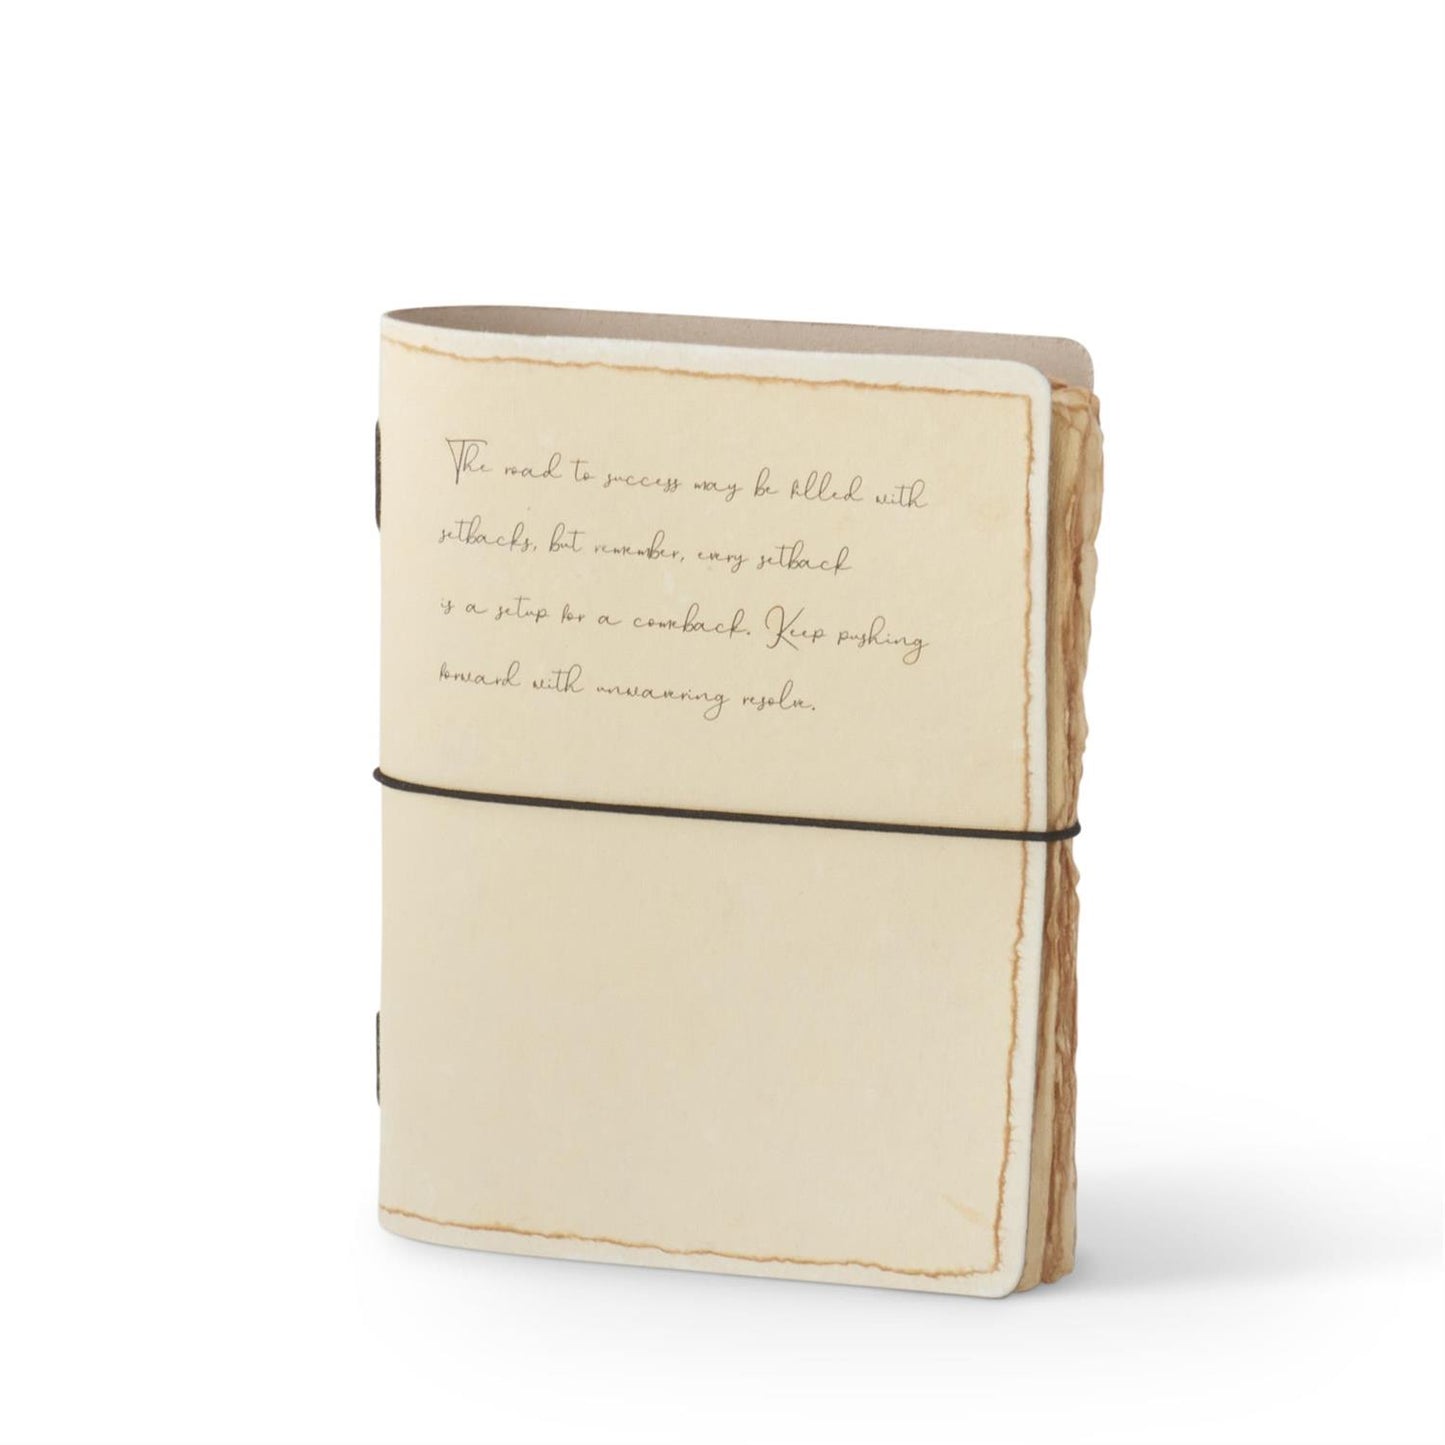 The road to success may be filled with
setbacks, but remember, every setback
is a setup for a comeback. Keep pushing
forward with unwavering resolve.